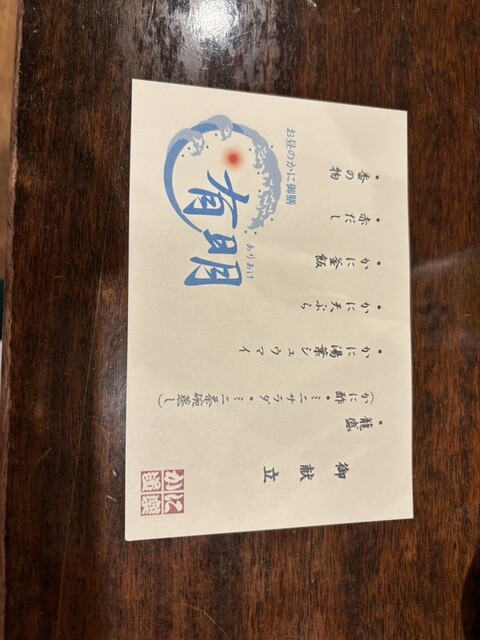 御献立
・籠盛
(かに酢・ミニサラダ・ミニ茶碗蒸し)
・かに湯葉シュウマイ
・かに天ぷら
・かに釜飯
・赤だし
・香の物
お昼のかに御膳
有明
ありあけ
かに道楽